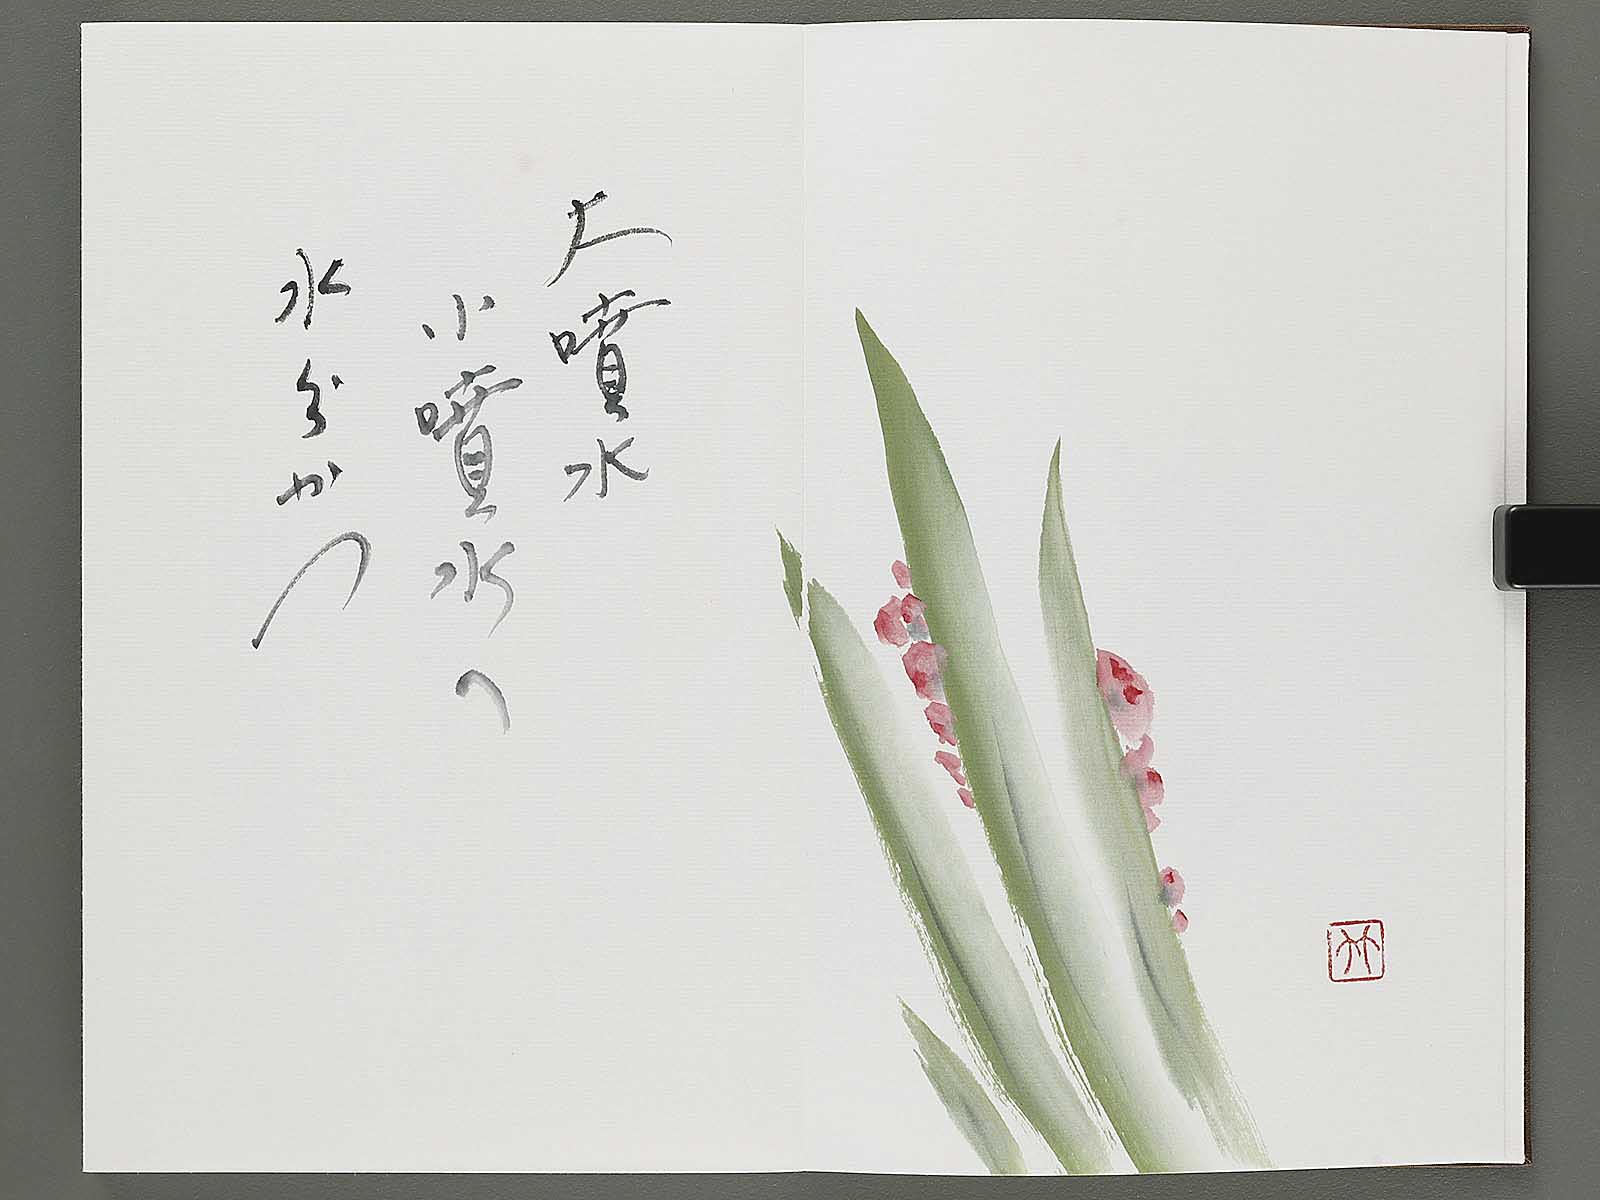 大噴水
小噴水へ
水分かつ
竹